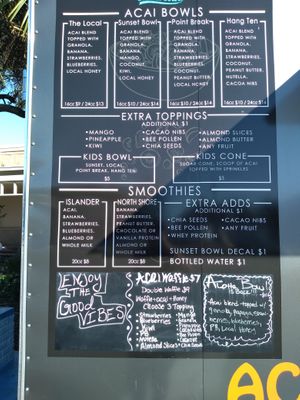 ACAI BOWLS
The Local
ACAI BLEND
TOPPED WITH
GRANOLA,
BANANA,
STRAWBERRIES,
BLUEBERRIES,
LOCAL HONEY
16oz $9 / 24oz $13
Sunset Bowl
ACAI BLEND
TOPPED WITH
GRANOLA,
BANANA,
MANGO,
COCONUT
KIWI,
LOCAL HONEY
16oz $10 / 24oz $14
Point Break
ACAI BLEND
TOPPED WITH
GRANOLA,
BANANA,
STRAWBERRIES,
COCONUT,
PEANUT BUTTER,
LOCAL HONEY
16oz $10 / 24oz $14
Hang Ten
ACAI BLEND
TOPPED WITH
GRANOLA,
BANANA,
COCONUT,
PEANUT BUTTER,
NUTELLA,
CACOA NIBS
16oz $10 / 24oz
EXTRA TOPPINGS
ADDITIONAL $1
•MANGO
•PINEAPPLE
•KIWI
•CACAO NIBS
•BEE POLLEN
•CHIA SEEDS
•ALMOND SLICES
•ALMOND BUTTER
•ANY FRUIT
KIDS BOWL
SUNSET, LOCAL,
POINT BREAK, HANG TEN
$5
KIDS CONE
SUGAR CONE, SCOOP OF ACAI
TOPPED WITH SPRINKLES
$5
SMOOTHIES
ISLANDER
ACAI,
BANANA,
STRAWBERRIES,
BLUEBERRIES,
ALMOND OR
WHOLE MILK
20oz $8
NORTH SHORE
BANANA
STRAWBERRIES,
PEANUT BUTTER,
CHOCOLATE OR
VANILLA PROTEIN
ALMOND OR
WHOLE MILK
20oz $8
EXTRA ADDS
ADDITIONAL $1
•CHIA SEEDS
•BEE POLLEN
•WHEY PROTEIN
•CACAO NIBS
•ANY FRUIT
SUNSET BOWL DECAL $1
BOTTLED WATER $1
ENJOY
THE
GOOD
VIBES
Acai Waffle $7
Double Waffle $9
Waffle + acai + Honey
Choose 3 Topping
Strawberries
Blueberries
Kiwi
PB
Nutella
Almond Slices
Mango
Granola
Pineapple
Bee Pollen
Coconut
Chia Seeds
Bowl
Acai blend topped w/
granola, papaya,
blueberry,
PB, Local Honey